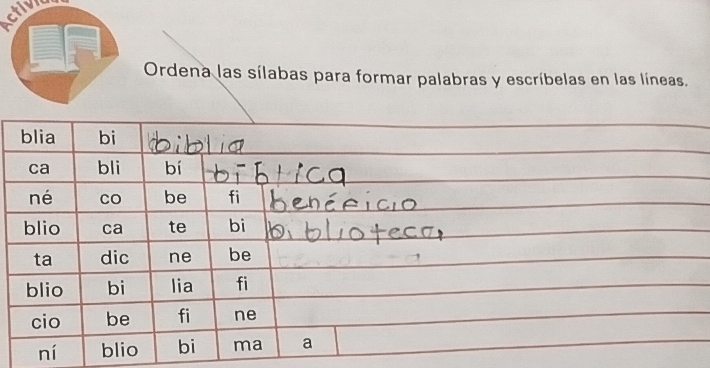 Ordena las sílabas para formar palabras y escríbelas en las líneas.
blia bi biblia
ca bli bí
né co be fi benéficio
blio ca te bi biblioteca
ta dic ne be
blio bi lia fi
cio be fi ne
ní blio bi ma a